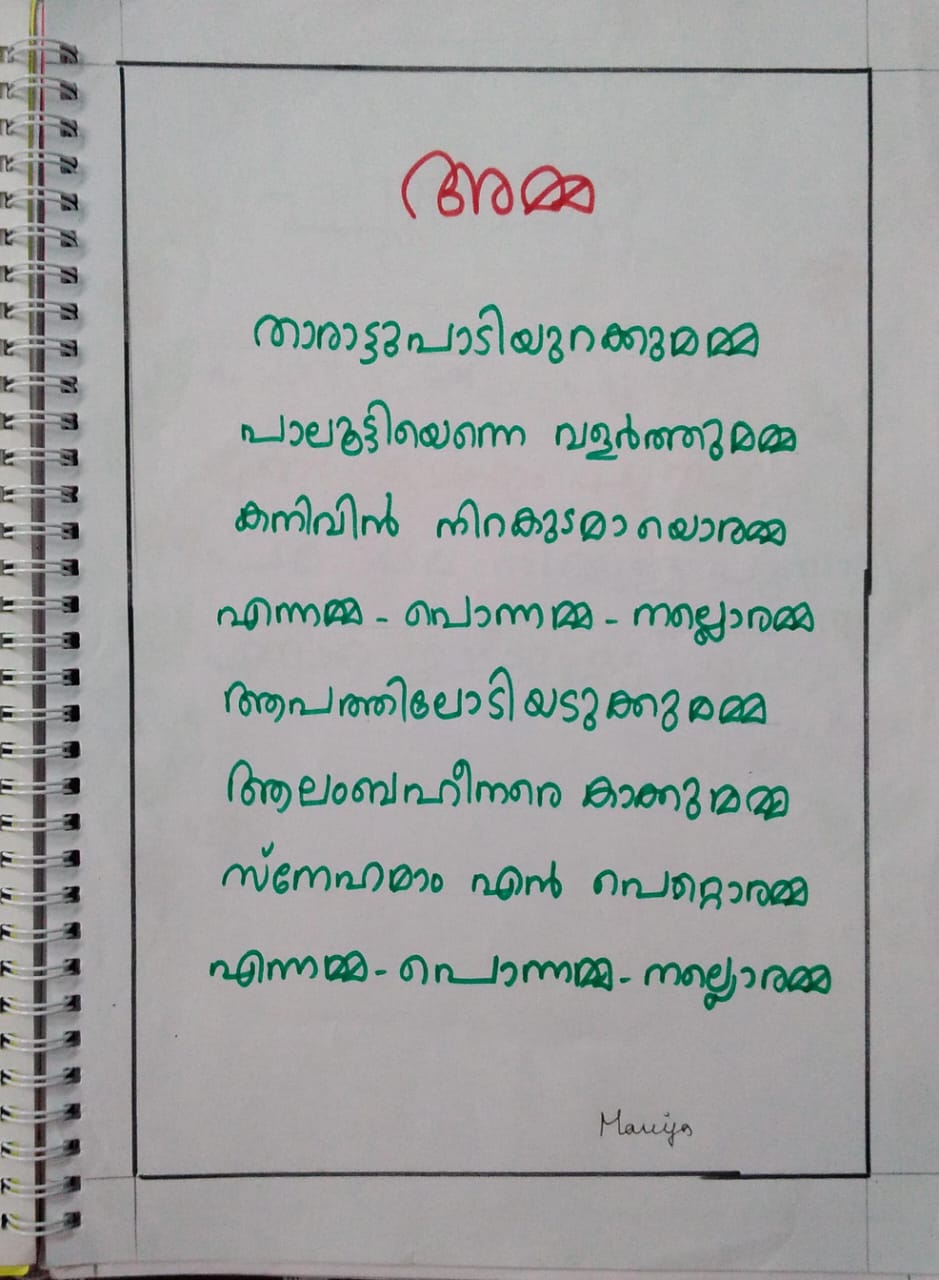 അമ്മ
താരാട്ടുപാടിയുറക്കുമമ്മ
പാലൂട്ടിയെന്നെ വളർത്തുമമ്മ
കനിവിൻ നിറകുടമായൊരമ്മ
എന്നമ്മ - പൊന്നമ്മ - നല്ലൊരമ്മ
ആപത്തിലോടിയടുക്കുമമ്മ
ആലംബഹീനരെ കാക്കുമമ്മ
സ്നേഹമാം എൻ പെറ്റൊരമ്മ
എന്നമ്മ - പൊന്നമ്മ - നല്ലൊരമ്മ
Mariya